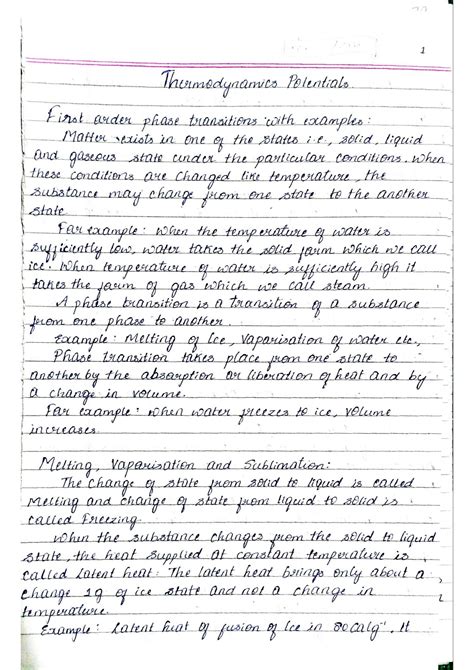 1
Thermodynamics Potentials.
First order phase transitions with examples:
Matter exists in one of the states i.e., solid, liquid
and gaseous state under the particular conditions. When
these conditions are changed like temperature, the
substance may change from one state to the another
state
For example: When the temperature of water is
sufficiently low, water takes the solid form which we call
ice. When temperature of water is sufficiently high it
takes the form of gas which we call steam.
A phase transition is a transition of a substance
from one phase to another.
Example: Melting of Ice, Vaporisation of water etc.,
Phase transition takes place from one state to
another by the absorption or liberation of heat and by
a change in volume.
For example: When water freezes to ice, volume
increases.
Melting, Vaporisation and Sublimation:
The change of state from solid to liquid is called
Melting and change of state from liquid to solid is
called Freezing.
When the substance changes from the solid to liquid
state, the heat supplied at constant temperature is
called Latent heat. The latent heat brings only about a
change 1g of ice state and not a change in
temperature.
Example: Latent heat of fusion of Ice in 80 Calg⁻¹. It